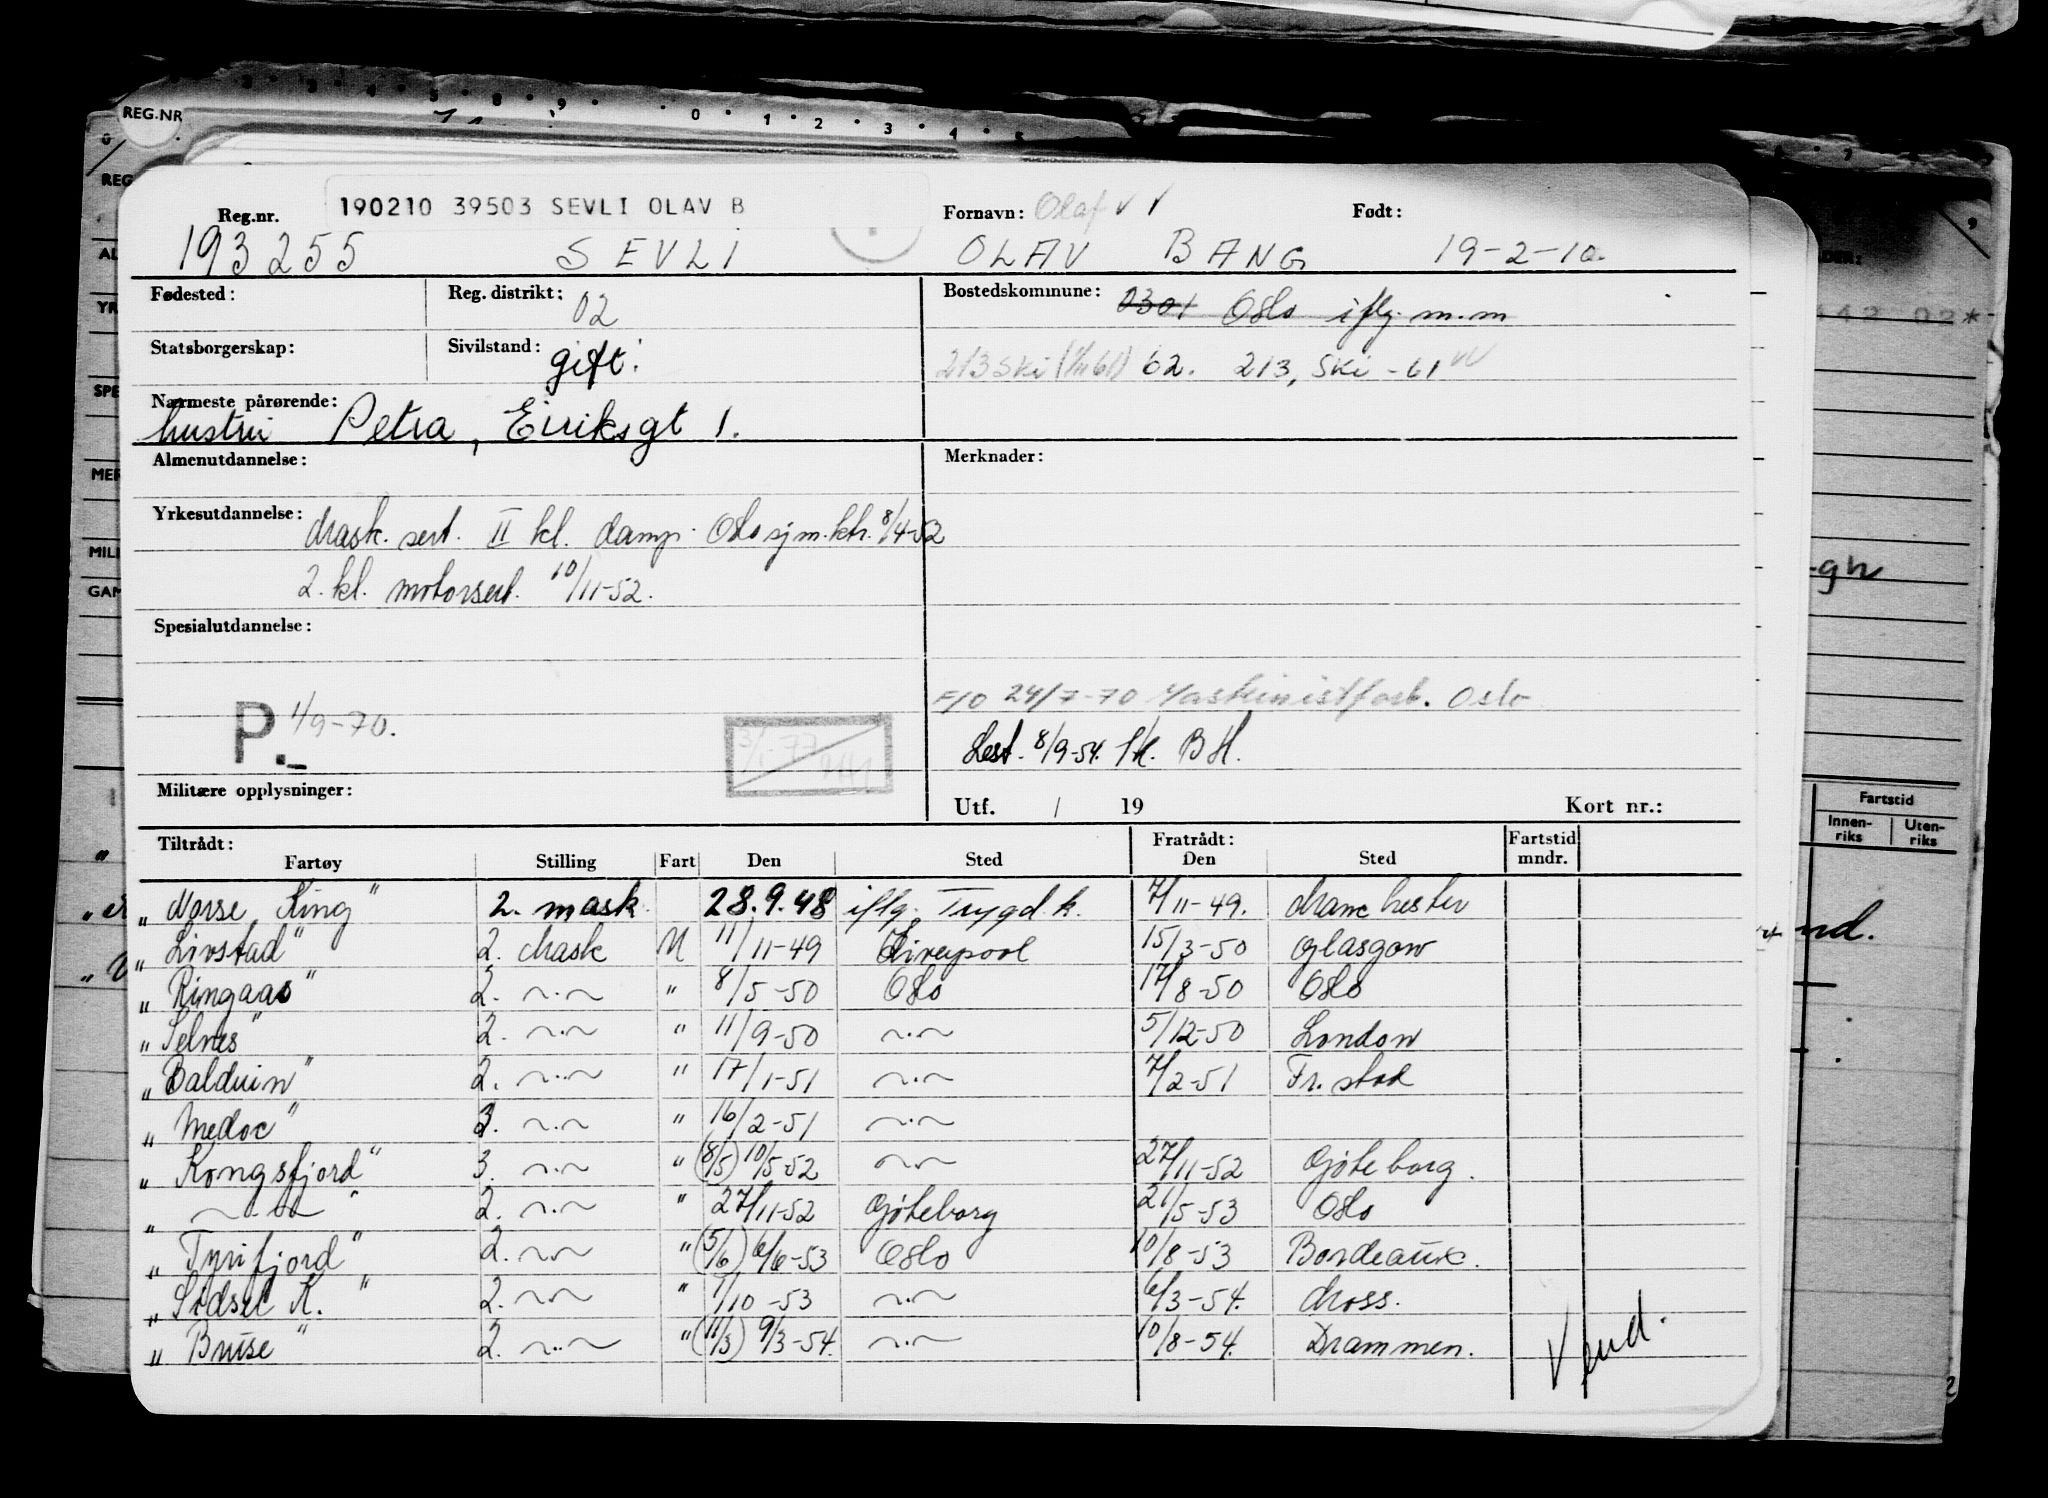 REG.NR
2 3 4 5 8 9 0 1 2 3 4 5
Reg.nr. 190210 39503 SEVLI OLAV B Fornavn: Olaf Født:
193255 SEVLI OLAV BANG 19-2-10.
Fødested: Reg. distrikt: 02 Bostedskommune: 0301 Oslo iflg. m.m
Statsborgerskap: Sivilstand: gift. 213 Ski 62. 213, Ski - 61
Nærmeste pårørende:
hustru Petra, Eiriksgt 1.
Almenutdannelse: Merknader:
Yrkesutdannelse: Mask. sert. II kl. damp. Oslo sjm.ktr. 8/4-52
2. kl. motorsert. 10/11-52.
Spesialutdannelse:
F/O 24/7-70 Maskinistforb. Oslo
P. 1/9-70. 3/1-77
Sert. 8/9-54. Sk. BH.
Militære opplysninger: Utf. / 19 Kort nr.:
Tiltrådt: Fratrådt: Fartstid
Fartøy Stilling Fart Den Sted Den Sted mndr.
„Norse King" 2. mask. 28.9.48 iflg. Trygd.k. 7/11-49. Manchester
„Livstad" 2. Mask M 11/11-49 Liverpool 15/3-50 Glasgow
„Ringaas" 2. ~.~ " 8/5-50 Oslo 17/8-50 Oslo
„Selnes" 2. ~.~ " 11/9-50 ~.~ 5/12-50 London
„Balduin" 2. ~.~ " 17/1-51 ~.~ 7/2-51 Fr.stad
„Medoc" 3. ~.~ " 16/2-51 ~.~
„Kongsfjord" 3. ~.~ " (8/5) 10/5-52 ~.~ 27/11-52 Göteborg.
„ ~.~ " 2. ~.~ " 27/11-52 Göteborg 21/5-53 Oslo
„Tyrifjord" 2. ~.~ " (5/6) 6/6-53 Oslo 10/8-53 Bordeaux.
„Sidsel K." 2. ~.~ " 1/10-53 ~.~ 6/3-54. Moss.
„Bruse" 2. ~.~ " (11/3) 9/3-54. ~.~ 10/8-54. Drammen.
Vend.
Fartstid
Innen-riks Uten-riks